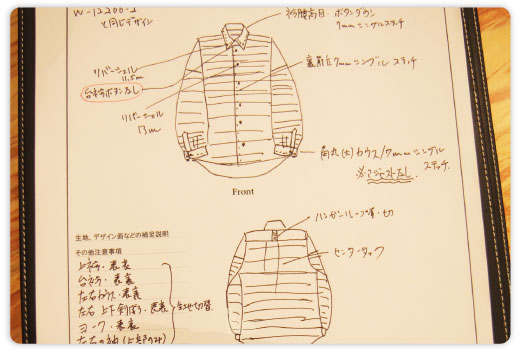 W-12200-2
と同じデザイン
衿腰高目 ボタンダウン
7mmシングルステッチ
リバーシェル
11.5m
台衿ボタンなし
裏前立7mmシングル ステッチ
リバーシェル
13m
角丸(大)カフス/7mmシングル
ステッチ
Front
生地、デザイン画などの補足説明
その他注意事項
上衿・表裏
台衿・表裏
左右カフス・表裏
左右 上下剣ぼろ・表裏
ヨーク・表裏
左右の袖(上部のみ)
ハンガーループ有・切
センタータック